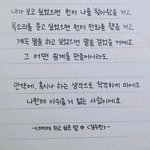 내가 보고 싶었으면 먼저 나를 찾아왔을 거고,
목소리를 듣고 싶었으면 먼저 전화를 했을 거고,
계속 말을 하고 싶었으면 말을 걸었을 거예요
그 어떤 핑계를 만들어서라도.
만약에, 혹시나 하는 생각으로 착각하지 마세요
나한테 아쉬울 거 없는 사람이에요.